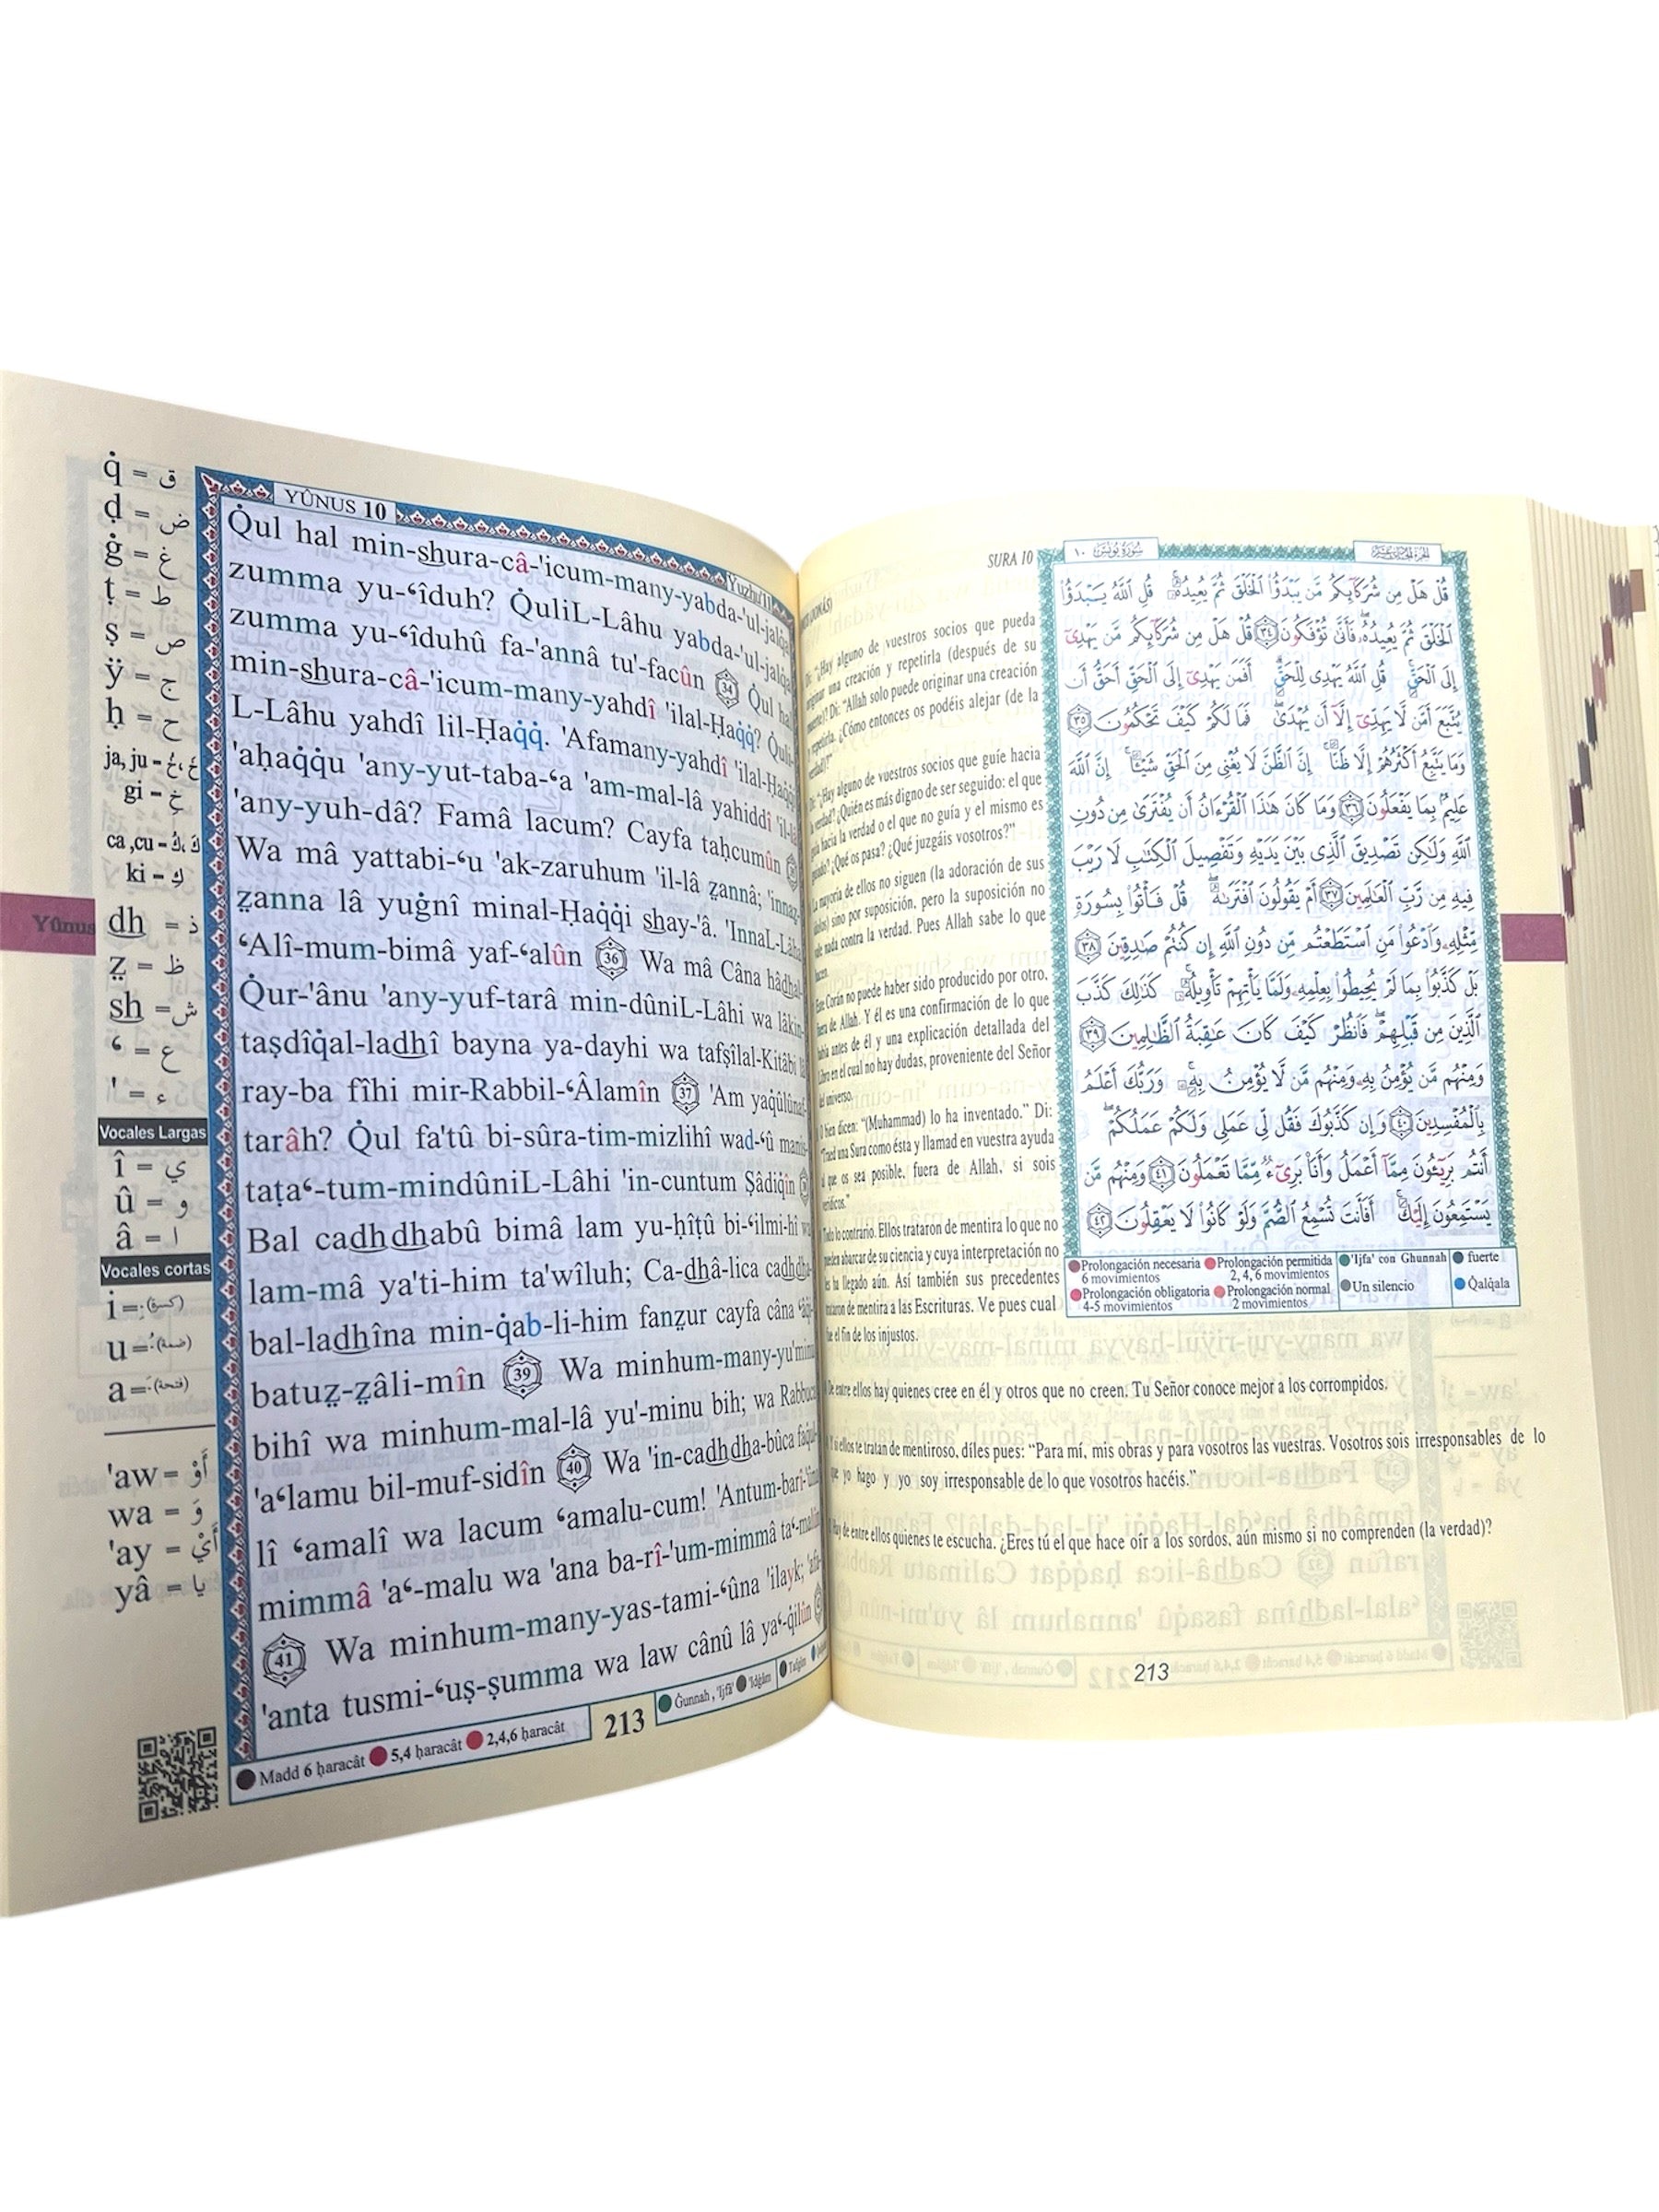 q̇ = ق
ḍ = ض
ġ = غ
ṭ = ط
ṣ = ص
ÿ = ج
ḥ = ح
ja, ju - خَ، خُ
gi - خِ
ca ,cu - كَ، كُ
ki - كِ
dh = ذ
ẓ = ظ
sh = ش
ʻ = ع
' = ء
Vocales Largas
î = ي
û = و
â = ا
Vocales cortas
i = (كسرة)
u = (ضمة)
a = (فتحة)
'aw = أَوْ
wa = وَ
'ay = أَيْ
yâ = يا
Yûnus
YÛNUS 10
Yuzhu'11
Q̇ul hal min-shura-câ-'icum-many-yabda-'ul-jalq̇a
zumma yu-ʻîduh? Q̇uliL-Lâhu yabda-'ul-jalq̇a
zumma yu-ʻîduhû fa-'annâ tu'-facûn 34 Q̇ul hal
min-shura-câ-'icum-many-yahdî 'ilal-Ḥaq̇q̇? Q̇uli-
L-Lâhu yahdî lil-Ḥaq̇q̇. 'Afamany-yahdî 'ilal-Ḥaq̇q̇i
'aḥaq̇q̇u 'any-yut-taba-ʻa 'am-mal-lâ yahiddî 'il-lâ
'any-yuh-dâ? Famâ lacum? Cayfa taḥcumûn
Wa mâ yattabi-ʻu 'ak-zaruhum 'il-lâ ẓannâ; 'innaẓ-
ẓanna lâ yuġnî minal-Ḥaq̇q̇i shay-'â. 'InnaL-Lâha
ʻAlî-mum-bimâ yaf-ʻalûn 36 Wa mâ Câna hâdhal-
Q̇ur-'ânu 'any-yuf-tarâ min-dûniL-Lâhi wa lâkin-
taṣdîq̇al-ladhî bayna ya-dayhi wa tafṣîlal-Kitâbi lâ
ray-ba fîhi mir-Rabbil-ʻÂlamîn 37 'Am yaq̇ûlûnaf-
tarâh? Q̇ul fa'tû bi-sûra-tim-mizlihî wad-ʻû manis-
taṭaʻ-tum-mindûniL-Lâhi 'in-cuntum Ṣâdiq̇în
Bal cadhdhabû bimâ lam yu-ḥîṭû bi-ʻilmi-hî wa
lam-mâ ya'ti-him ta'wîluh; Ca-dhâ-lica cadhdha-
bal-ladhîna min-q̇ab-li-him fanẓur cayfa câna ʻâq̇i-
batuẓ-ẓâli-mîn 39 Wa minhum-many-yu'minu
bihî wa minhum-mal-lâ yu'-minu bih; wa Rabbuca
'aʻlamu bil-muf-sidîn 40 Wa 'in-cadhdha-bûca faq̇ul-
lî ʻamalî wa lacum ʻamalu-cum! 'Antum-barî-'ûna
mimmâ 'aʻ-malu wa 'ana ba-rî-'um-mimmâ taʻ-malûn
41 Wa minhum-many-yas-tami-ʻûna 'ilayk; 'afa-
'anta tusmi-ʻuṣ-ṣumma wa law cânû lâ yaʻ-q̇ilûn
Madd 6 ḥaracât 5,4 ḥaracât 2,4,6 ḥaracât
213
Ġunnah , 'Ijfâ' 'Idġâm Tafġîm
SURA 10
Di: “¿Hay alguno de vuestros socios que pueda
originar una creación y repetirla (después de su
muerte)? Di: “Allah solo puede originar una creación
y repetirla. ¿Cómo entonces os podéis alejar (de la
verdad)?”
Di: “¿Hay alguno de vuestros socios que guíe hacia
la verdad? ¿Quién es más digno de ser seguido: el que
guía hacia la verdad o el que no guía y el mismo es
guiado? ¿Qué os pasa? ¿Qué juzgáis vosotros?”
La mayoría de ellos no siguen (la adoración de sus
ídolos) sino por suposición, pero la suposición no
vale nada contra la verdad. Pues Allah sabe lo que
hacen.
Este Corán no puede haber sido producido por otro,
fuera de Allah. Y él es una confirmación de lo que
había antes de él y una explicación detallada del
Libro en el cual no hay dudas, proveniente del Señor
del universo.
O bien dicen: “(Muhammad) lo ha inventado.” Di:
“Traed una Sura como ésta y llamad en vuestra ayuda
a que os sea posible, fuera de Allah, si sois
verídicos.”
Todo lo contrario. Ellos trataron de mentira lo que no
pueden abarcar de su ciencia y cuya interpretación no
les ha llegado aún. Así también sus precedentes
trataron de mentira a las Escrituras. Ve pues cual
fue el fin de los injustos.
De entre ellos hay quienes cree en él y otros que no creen. Tu Señor conoce mejor a los corrompidos.
Y si ellos te tratan de mentiroso, díles pues: “Para mí, mis obras y para vosotros las vuestras. Vosotros sois irresponsables de lo
que yo hago y yo soy irresponsable de lo que vosotros hacéis.”
Hay de entre ellos quienes te escucha. ¿Eres tú el que hace oír a los sordos, aún mismo si no comprenden (la verdad)?
213
سُورَةُ يُونُسَ ١٠
قُلْ هَلْ مِن شُرَكَآئِكُم مَّن يَبْدَؤُا۟ ٱلْخَلْقَ ثُمَّ يُعِيدُهُۥ ۚ قُلِ ٱللَّهُ يَبْدَؤُا۟
ٱلْخَلْقَ ثُمَّ يُعِيدُهُۥ ۖ فَأَنَّىٰ تُؤْفَكُونَ ٣٤ قُلْ هَلْ مِن شُرَكَآئِكُم مَّن يَهْدِىٓ
إِلَى ٱلْحَقِّ ۚ قُلِ ٱللَّهُ يَهْدِى لِلْحَقِّ ۗ أَفَمَن يَهْدِىٓ إِلَى ٱلْحَقِّ أَحَقُّ أَن
يُتَّبَعَ أَمَّن لَّا يَهِدِّىٓ إِلَّآ أَن يُهْدَىٰ ۖ فَمَا لَكُمْ كَيْفَ تَحْكُمُونَ ٣٥
وَمَا يَتَّبِعُ أَكْثَرُهُمْ إِلَّا ظَنًّا ۚ إِنَّ ٱلظَّنَّ لَا يُغْنِى مِنَ ٱلْحَقِّ شَيْـًٔا ۚ إِنَّ ٱللَّهَ
عَلِيمٌۢ بِمَا يَفْعَلُونَ ٣٦ وَمَا كَانَ هَٰذَا ٱلْقُرْءَانُ أَن يُفْتَرَىٰ مِن دُونِ
ٱللَّهِ وَلَٰكِن تَصْدِيقَ ٱلَّذِى بَيْنَ يَدَيْهِ وَتَفْصِيلَ ٱلْكِتَٰبِ لَا رَيْبَ
فِيهِ مِن رَّبِّ ٱلْعَٰلَمِينَ ٣٧ أَمْ يَقُولُونَ ٱفْتَرَىٰهُ ۖ قُلْ فَأْتُوا۟ بِسُورَةٍ
مِّثْلِهِۦ وَٱدْعُوا۟ مَنِ ٱسْتَطَعْتُم مِّن دُونِ ٱللَّهِ إِن كُنتُمْ صَٰدِقِينَ ٣٨
بَلْ كَذَّبُوا۟ بِمَا لَمْ يُحِيطُوا۟ بِعِلْمِهِۦ وَلَمَّا يَأْتِهِمْ تَأْوِيلُهُۥ ۚ كَذَٰلِكَ كَذَّبَ
ٱلَّذِينَ مِن قَبْلِهِمْ ۖ فَٱنظُرْ كَيْفَ كَانَ عَٰقِبَةُ ٱلظَّٰلِمِينَ ٣٩
وَمِنْهُم مَّن يُؤْمِنُ بِهِۦ وَمِنْهُم مَّن لَّا يُؤْمِنُ بِهِۦ ۚ وَرَبُّكَ أَعْلَمُ
بِٱلْمُفْسِدِينَ ٤٠ وَإِن كَذَّبُوكَ فَقُل لِّى عَمَلِى وَلَكُمْ عَمَلُكُمْ ۖ
أَنتُم بَرِيٓـُٔونَ مِمَّآ أَعْمَلُ وَأَنَا۠ بَرِىٓءٌ مِّمَّا تَعْمَلُونَ ٤١ وَمِنْهُم مَّن
يَسْتَمِعُونَ إِلَيْكَ ۚ أَفَأَنتَ تُسْمِعُ ٱلصُّمَّ وَلَوْ كَانُوا۟ لَا يَعْقِلُونَ ٤٢
Prolongación necesaria 6 movimientos
Prolongación permitida 2, 4, 6 movimientos
'Ijfa' con Ghunnah
fuerte
Prolongación obligatoria 4-5 movimientos
Prolongación normal 2 movimientos
Un silencio
Q̇alq̇ala